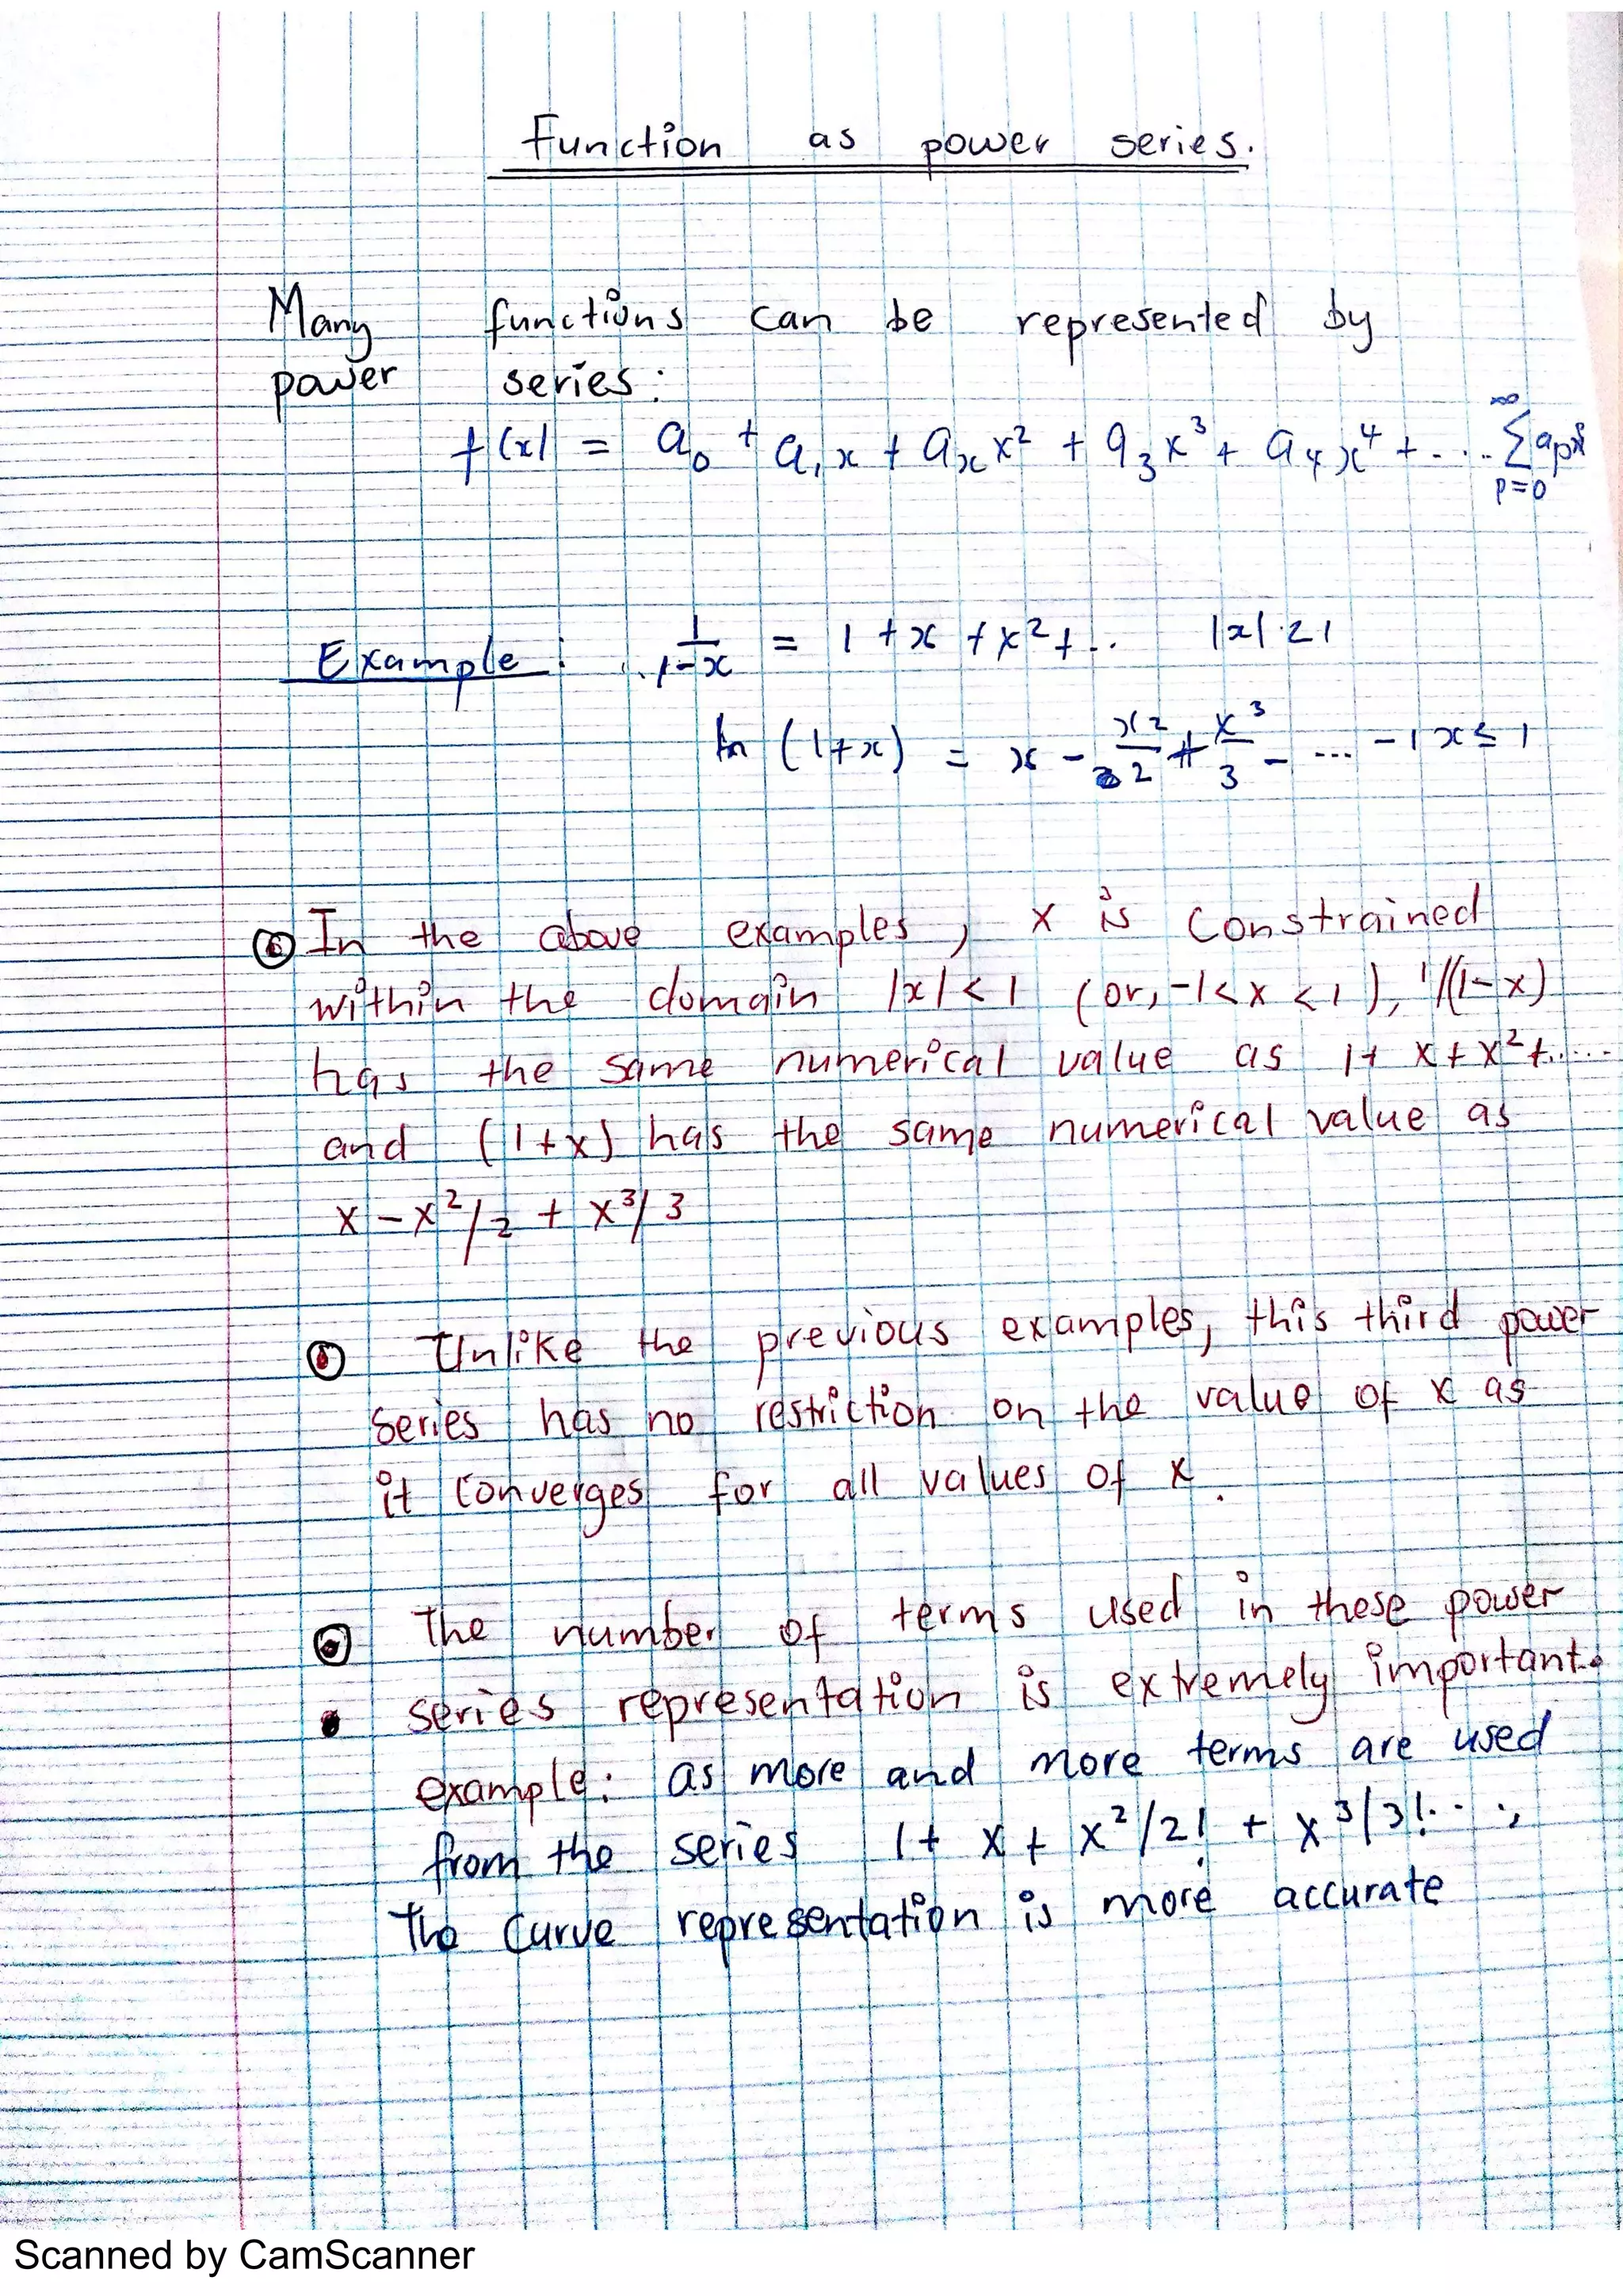 Function as power series.
Many functions can be represented by
power series:
f(x) = a₀ + a₁x + aₓx² + a₃x³ + a₄x⁴ + .... ∞ ∑ p=0 aₚxᵖ
Example : 1/1-x = 1 + x + x² + .. |x| ∠ 1
ln (1+x) = x - x²/2 + x³/3 - ... -1 x ≤ 1
In the above examples, x is constrained
within the domain |x| < 1 (or, -1< x < 1), 1/(1-x)
has the same numerical value as 1+ x + x² + .....
and (1+x) has the same numerical value as
x - x²/2 + x³/3
Unlike the previous examples, this third power
series has no restriction on the value of x as
it converges for all values of x.
The number of terms used in these power
series representation is extremely important.
example: as more and more terms are used
from the series 1+ x + x²/2! + x³/3!....,
The curve representation is more accurate
Scanned by CamScanner